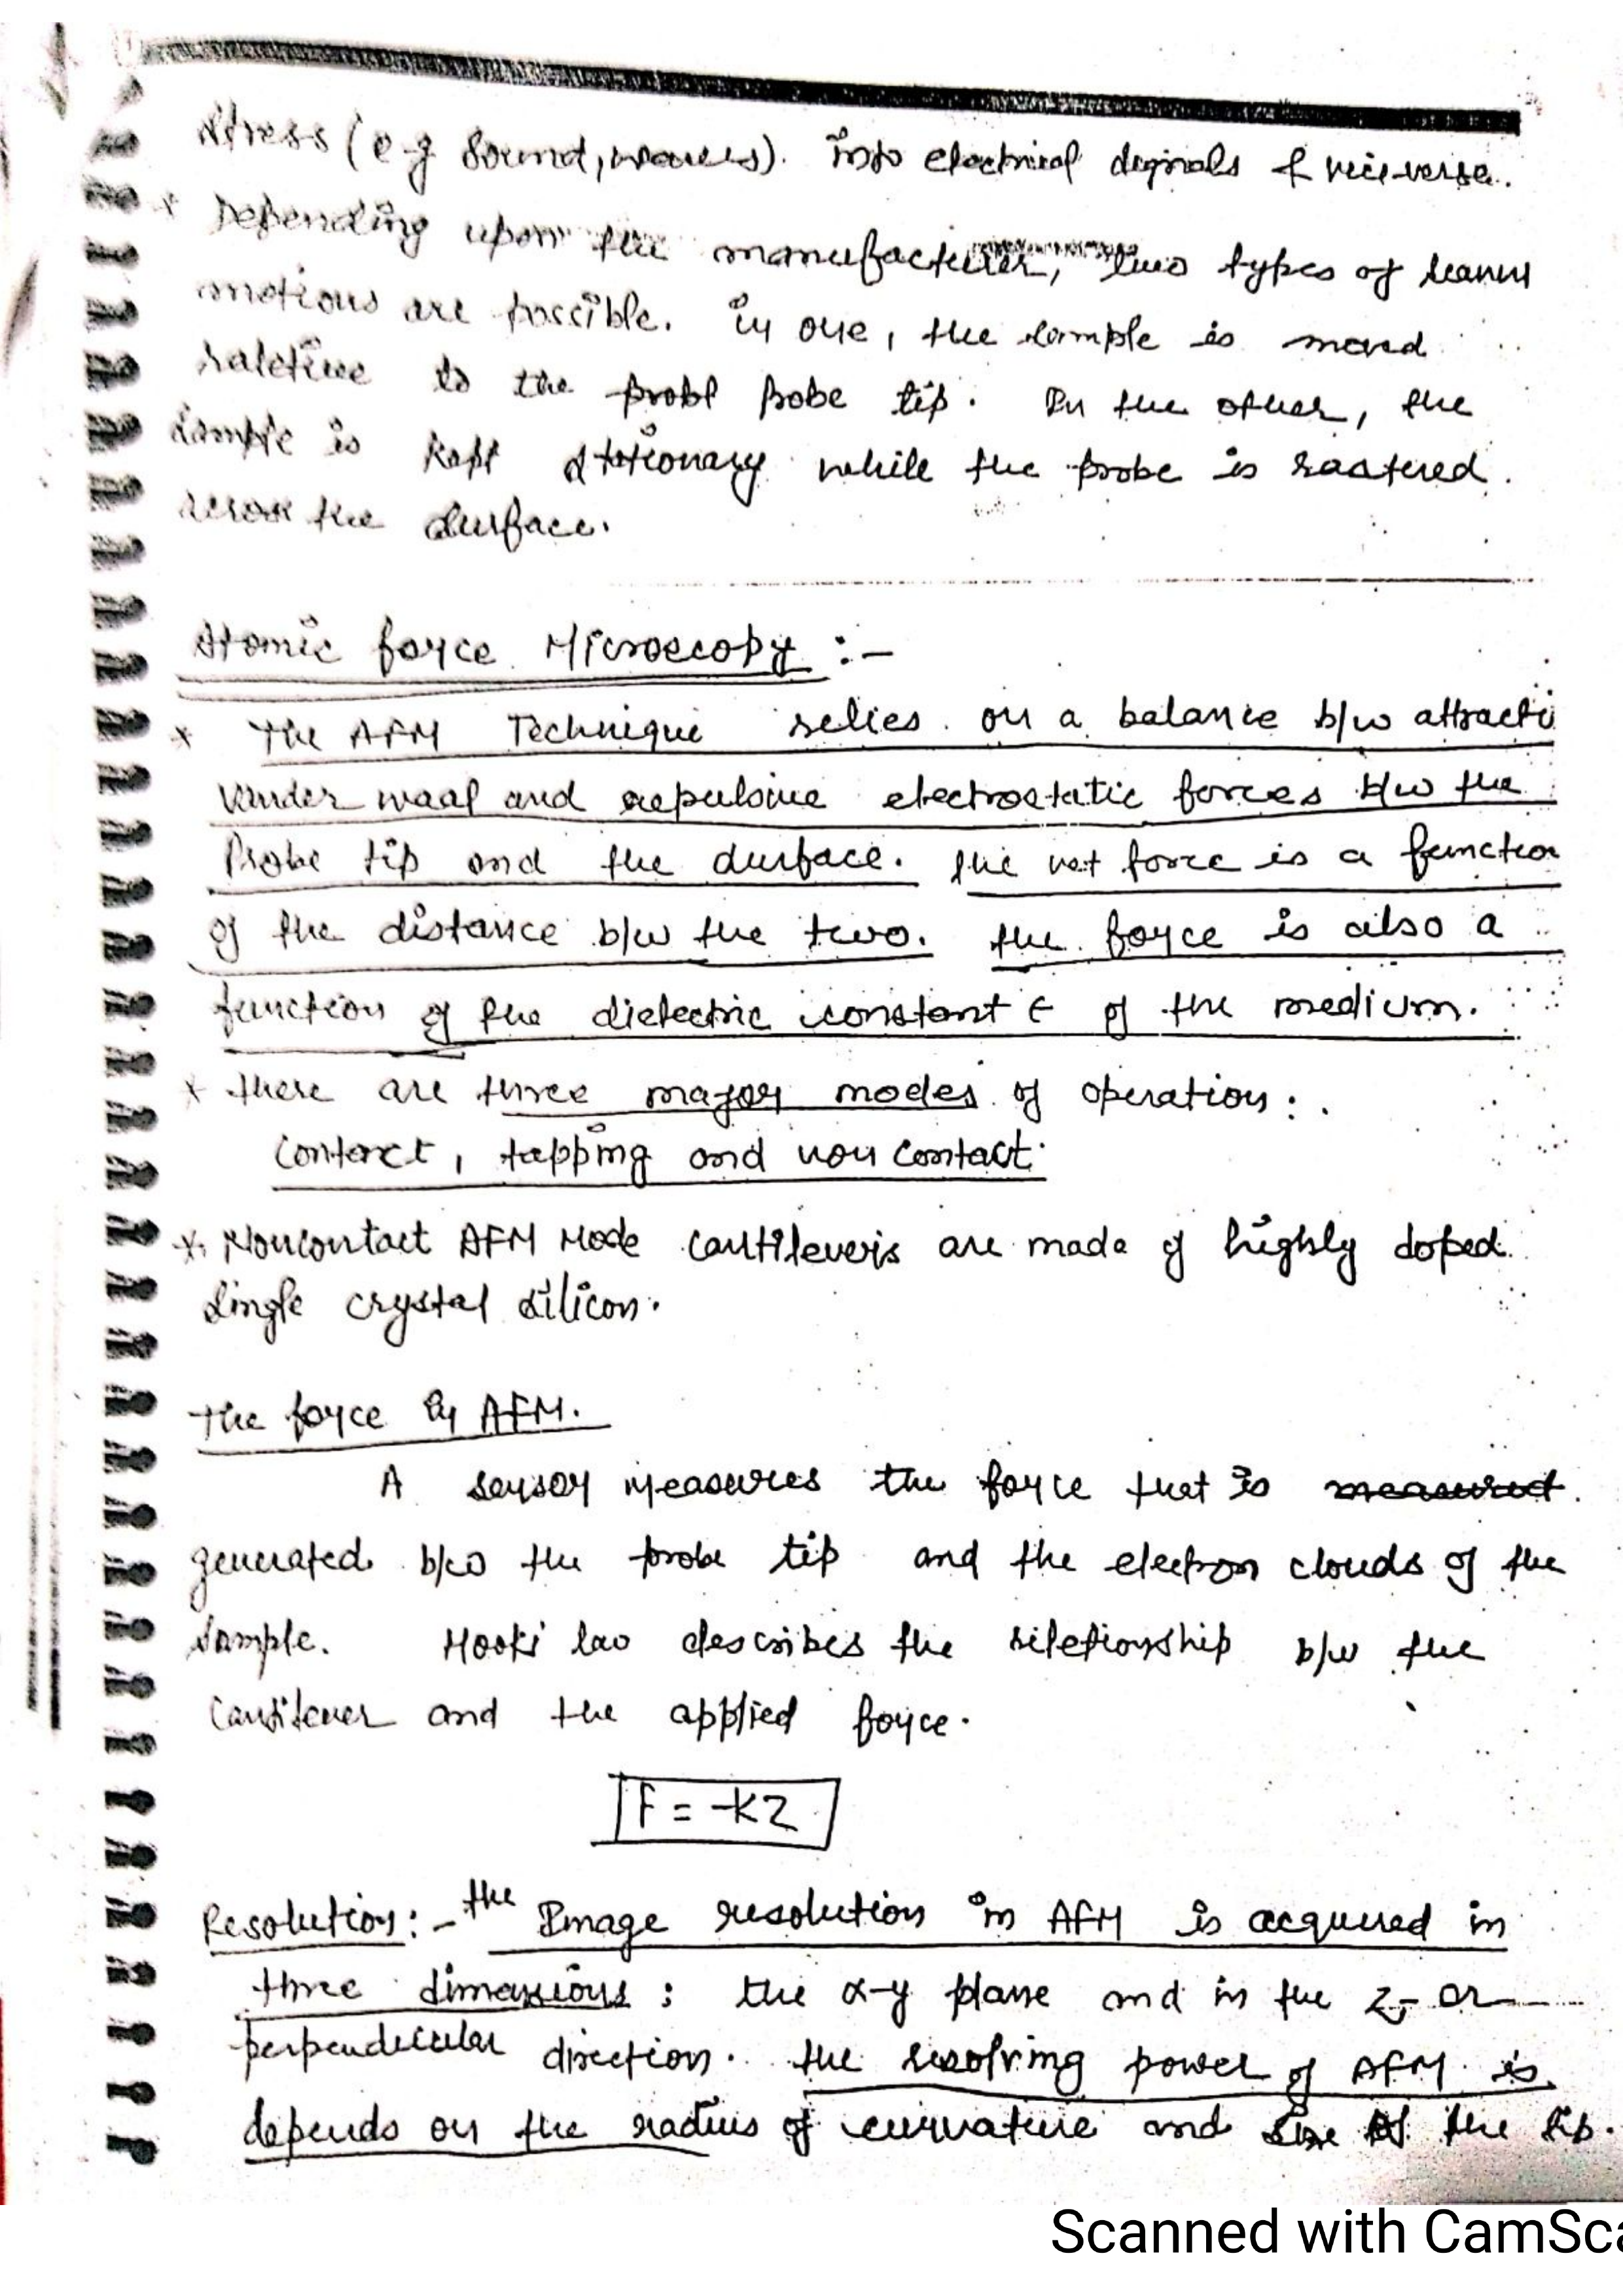 stress (e.g sound, waves). into electrical signals & vice-versa.
* Depending upon the manufacturer, two types of
motions are possible. In one, the sample is moved
relative to the probl probe tip. In the other, the
sample is kept stationary while the probe is rastered.
across the surface.
Atomic force Microscopy :-
* The AFM Technique relies on a balance b/w attracti
vander waal and repulsive electrostatic forces b/w the
Probe tip and the surface. the net force is a function
of the distance b/w the two. the force is also a
function of the dielectric constant ε of the medium.
* there are three major modes of operation :.
contact, tapping and non contact.
* Noncontact AFM Mode cantilevers are made of highly doped.
single crystal silicon.
The force by AFM.
A sensor measures the force that is measured.
generated b/w the probe tip and the electron clouds of the
sample. Hooki law describes the reletionship b/w the
cantilever and the applied force.
F = -KZ
Resolution :- the Image resolution in AFM is acquired in
three dimensions : the x-y plane and in the z- or
perpendicular direction. the resolving power of AFM is
depends on the radius of curvature and size of the tip.
Scanned with CamSca